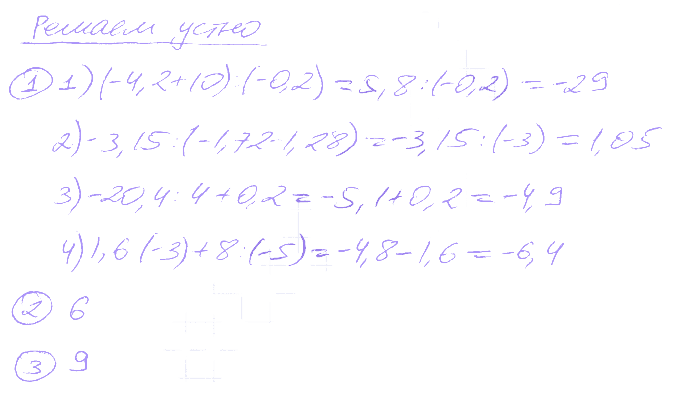 Решаем устно
1 1) (-4,2+10) : (-0,2) = 5,8 : (-0,2) = -29
2) -3,15 : (-1,72-1,28) = -3,15 : (-3) = 1,05
3) -20,4 : 4 + 0,2 = -5,1 + 0,2 = -4,9
4) 1,6 (-3) + 8 : (-5) = -4,8 - 1,6 = -6,4
2 6
3 9